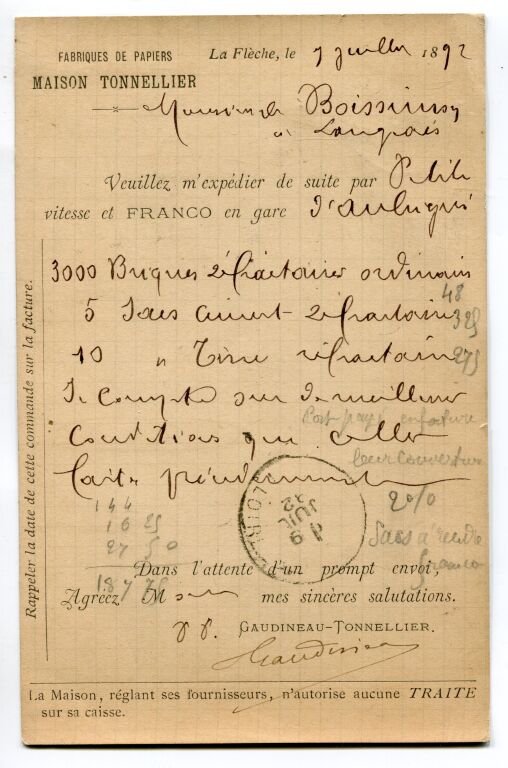 FABRIQUES DE PAPIERS
MAISON TONNELLIER
La Flèche, le 7 juillet 1892
Monsieur de Boissimon
à Langeais
Veuillez m'expédier de suite par Petite
vitesse et FRANCO en gare d'aubigné
3000 Briques réfractaires ordinaires
48
5 Sacs ciment réfractaire 325
10 " Terre réfractaire 275
Je compte sur de meilleures
Conditions que celles
faites précédemment
Port payé en facture
leur couverture
2%
Sacs à rendre
franco
144
16 25
27 50
187 75
JUIL
92
Dans l'attente d'un prompt envoi,
Agréez, M mes sincères salutations.
GAUDINEAU-TONNELLIER.
Gaudineau
La Maison, réglant ses fournisseurs, n'autorise aucune TRAITE
sur sa caisse.
Rappeler la date de cette commande sur la facture.